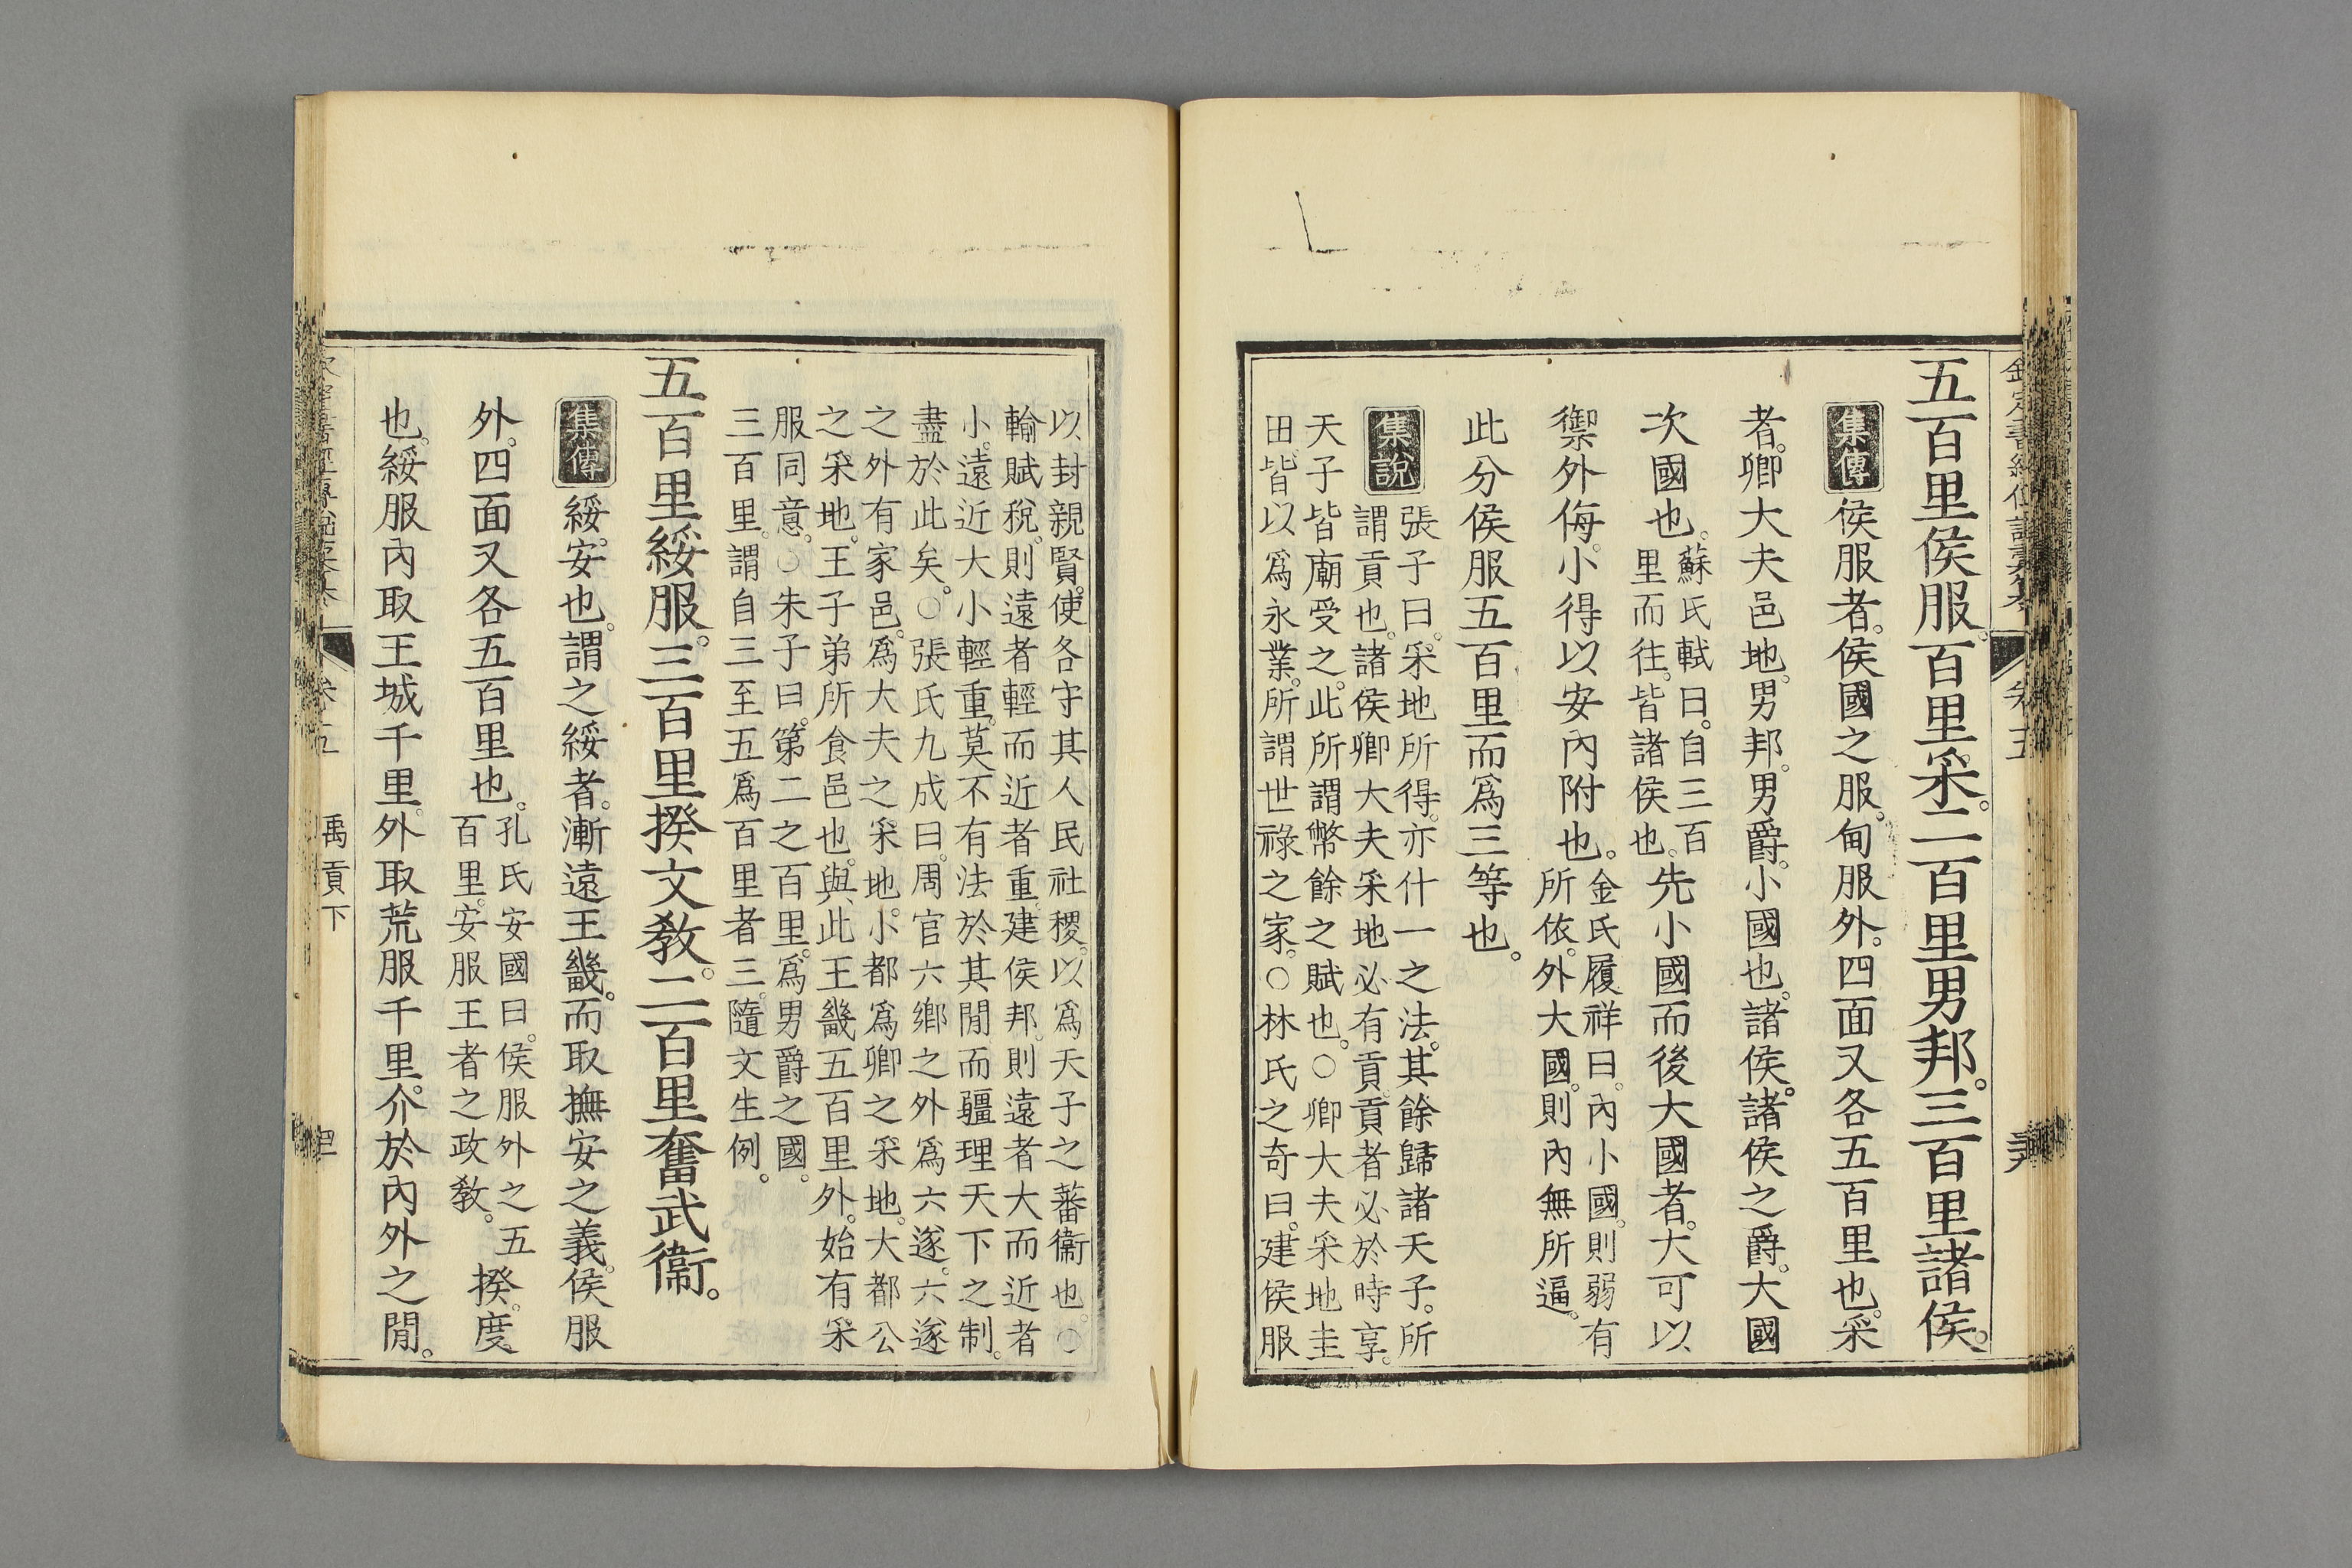 五百里侯服。百里采。二百里男邦。三百里諸侯。
集傳 侯服者。侯國之服。甸服外。四面又各五百里也。采
者。卿大夫邑地。男邦。男爵。小國也。諸侯。諸侯之爵。大國
次國也。蘇氏軾曰。自三百
里而往。皆諸侯也。先小國而後大國者。大可以
禦外侮。小得以安內附也。金氏履祥曰。內小國。則弱有
所依。外大國。則內無所逼。
此分侯服五百里而爲三等也。
集說 張子曰。采地所得。亦什一之法。其餘歸諸天子。所
謂貢也。諸侯卿大夫采地必有貢。貢者必於時享。
天子皆廟受之。此所謂幣餘之賦也。○卿大夫采地圭
田。皆以爲永業。所謂世祿之家。○林氏之奇曰。建侯服
以封親賢。使各守其人民社稷。以爲天子之蕃衞也。○
輸賦稅。則遠者輕而近者重。建侯邦。則遠者大而近者
小。遠近大小輕重。莫不有法於其閒而疆理天下之制。
盡於此矣。○張氏九成曰。周官六鄉之外爲六遂。六遂
之外有家邑。爲大夫之采地。小都爲卿之采地。大都公
之采地。王子弟所食邑也。與此王畿五百里外。始有采
服同意。○朱子曰。第二之百里。爲男爵之國。
三百里。謂自三至五爲百里者三。隨文生例。
五百里綏服。三百里揆文敎。二百里奮武衞。
集傳 綏。安也。謂之綏者。漸遠王畿。而取撫安之義。侯服
外。四面又各五百里也。孔氏安國曰。侯服外之五
百里。安服王者之政敎。揆。度
也。綏服內取王城千里。外取荒服千里。介於內外之閒。
卷五
禹貢下